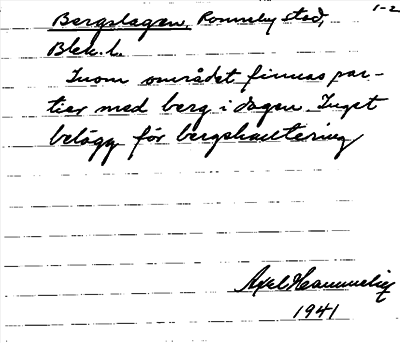 1-2
Bergslagen, Ronneby stad,
Blek. l.
Inom området finnas par-
tier med berg i dagen. Inget
belägg för bergshantering
Axel
1941